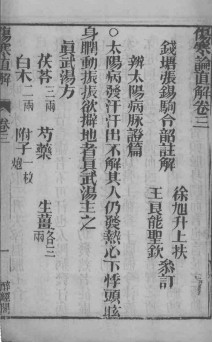 傷寒論直解卷三
徐旭升上扶
錢塘張錫駒令韶註解
王良能聖欽 叅訂
辨太陽病脉證篇
○太陽病發汗汗出不解其人仍發熱心下悸頭眩
身瞤動振振欲擗地者眞武湯主之
眞武湯方
茯苓三兩 芍藥 生薑各三兩
白朮二兩 附子一枚炮
傷寒直解 卷三 一